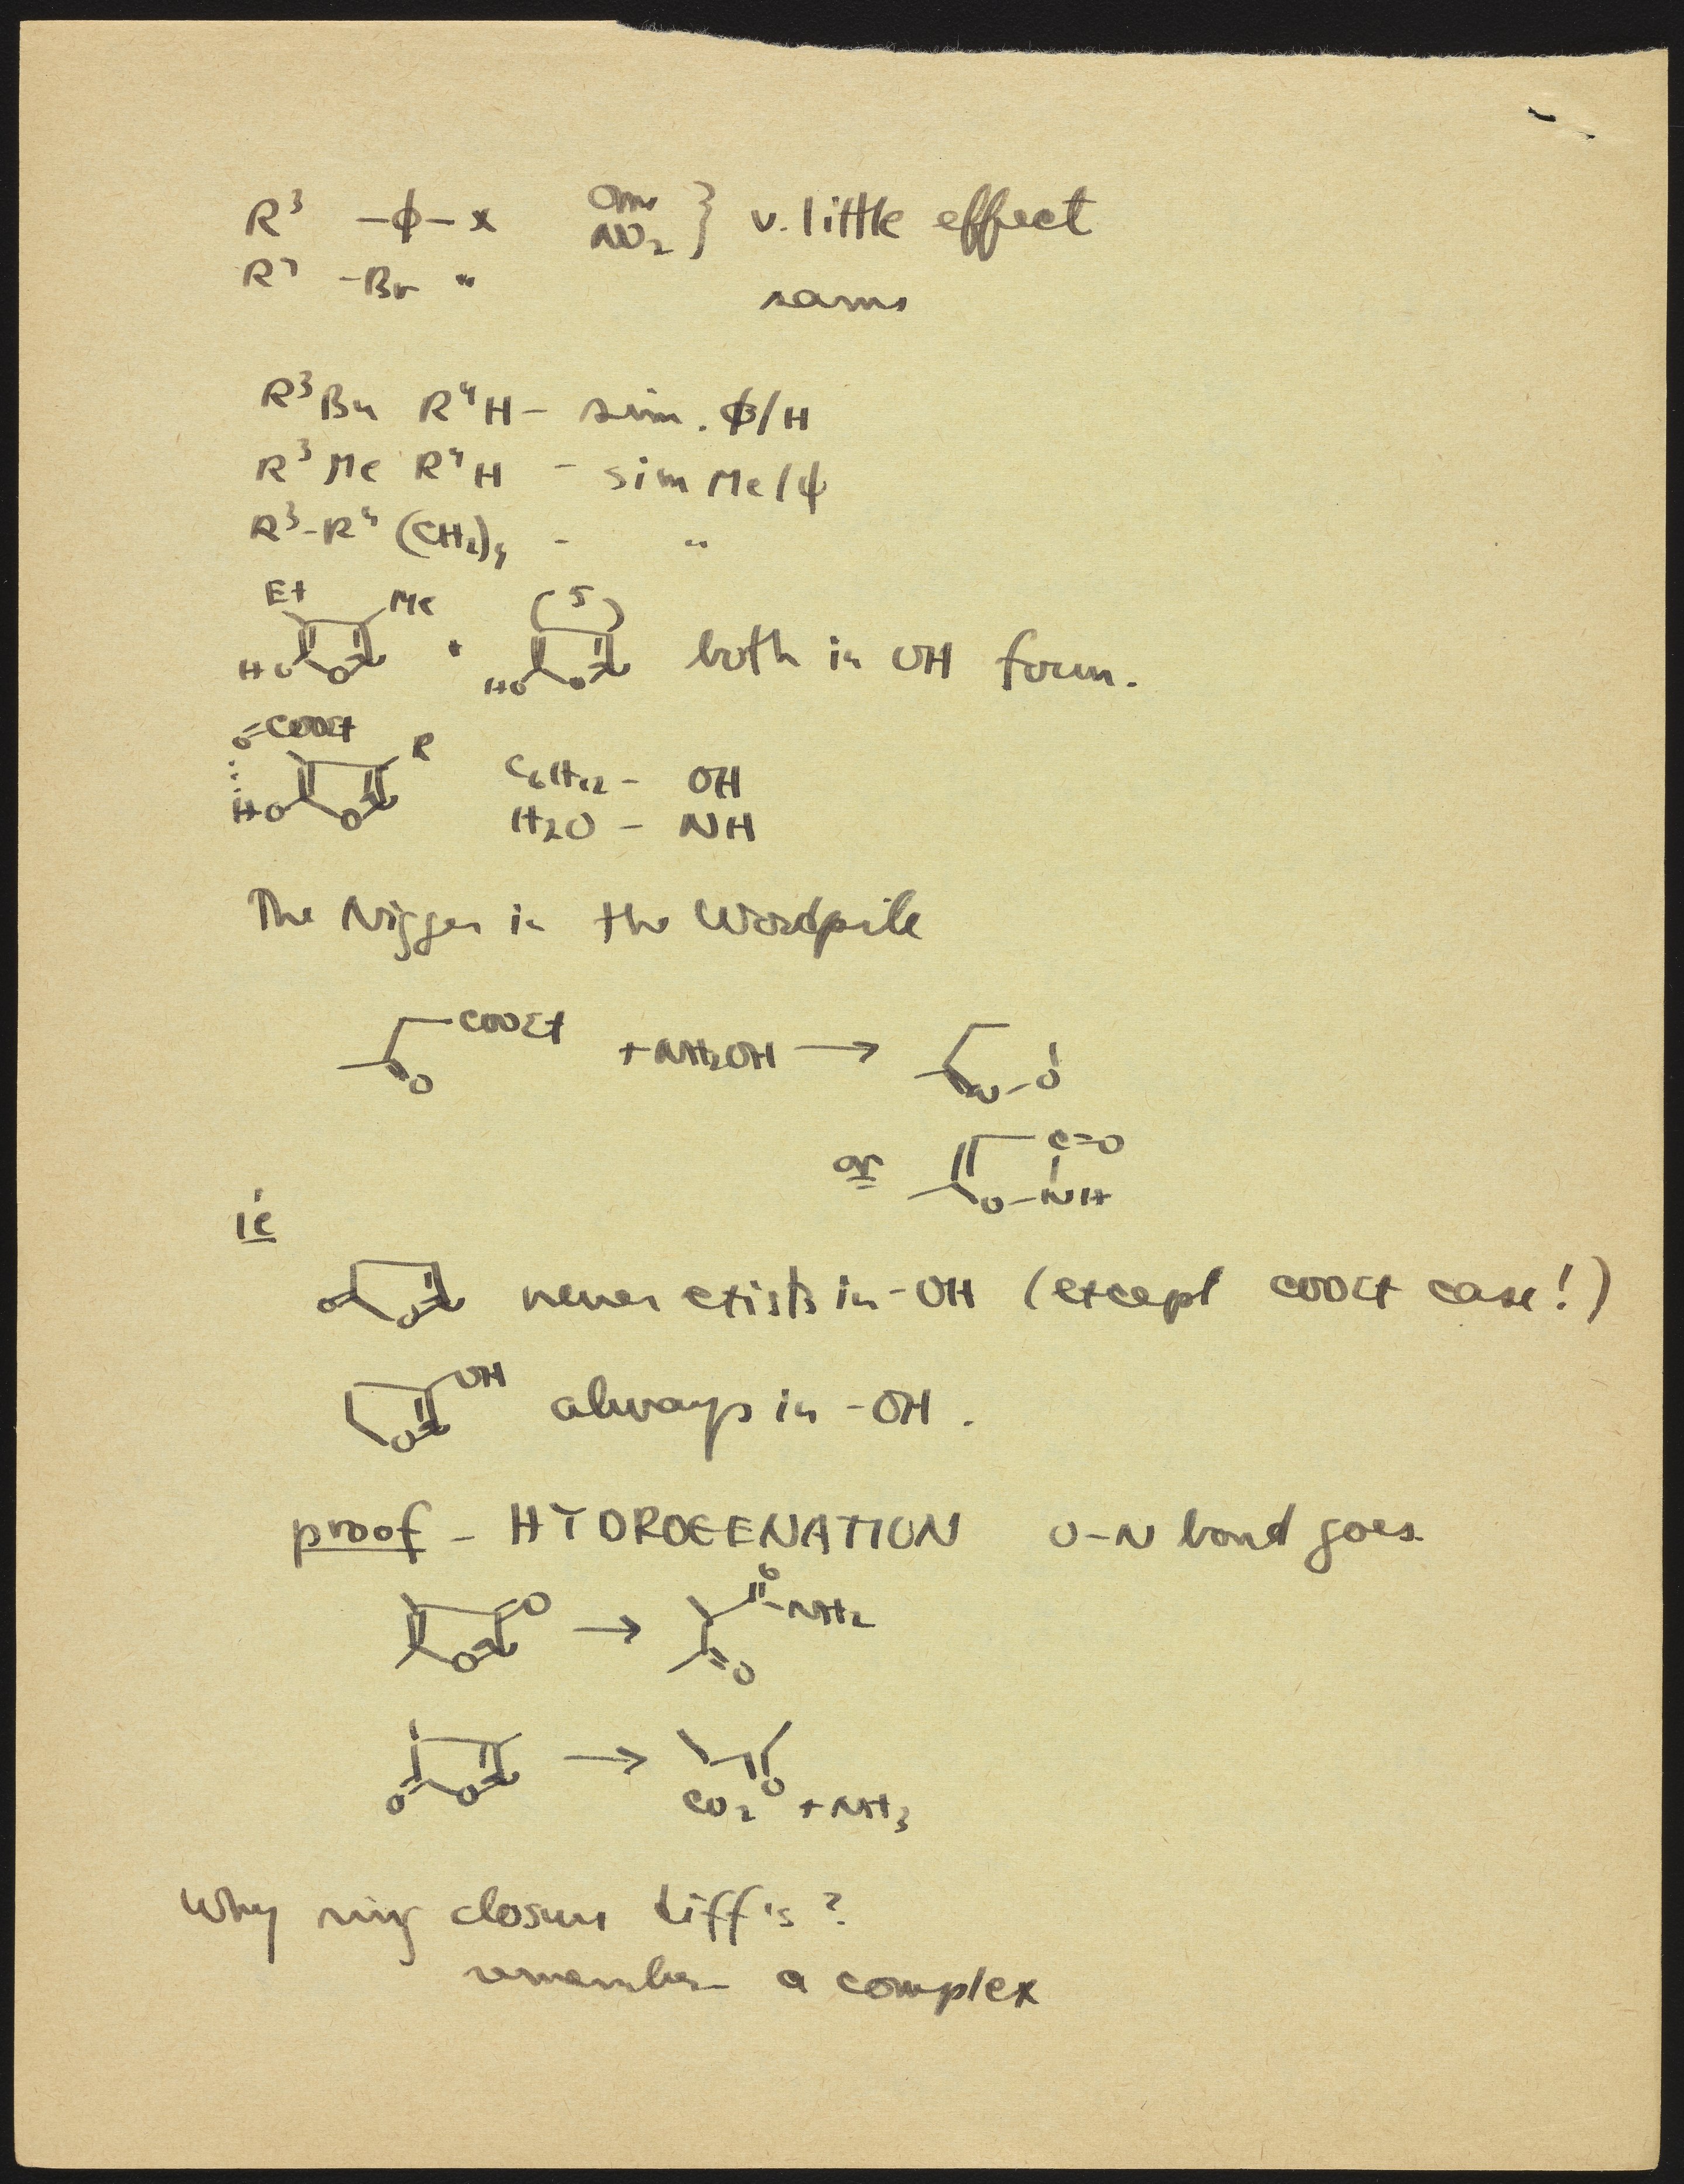 R³ -ϕ-x OMe } v. little effect
NO₂
R³ -Br "
same
R³Bu R⁴H - sim. ϕ/H
R³Me R⁴H - sim Me/ϕ
R³-R⁴ (CH₂)₄ - "
Et Me (5)
HO O N + HO O N both in OH form.
O=COOEt R
HO O N C₆H₁₂ - OH
H₂O - NH
The Nigger in the Woodpile
COOEt
O + NH₂OH → N-O
or C=O
O-NH
ie
O O N never exists in -OH (except COOEt case!)
OH
O N always in -OH.
proof - HYDROGENATION O-N bond goes
O → O
O N NH₂
O
→
O O N O
CO₂ + NH₃
Why ring closure diff's?
remember a complex